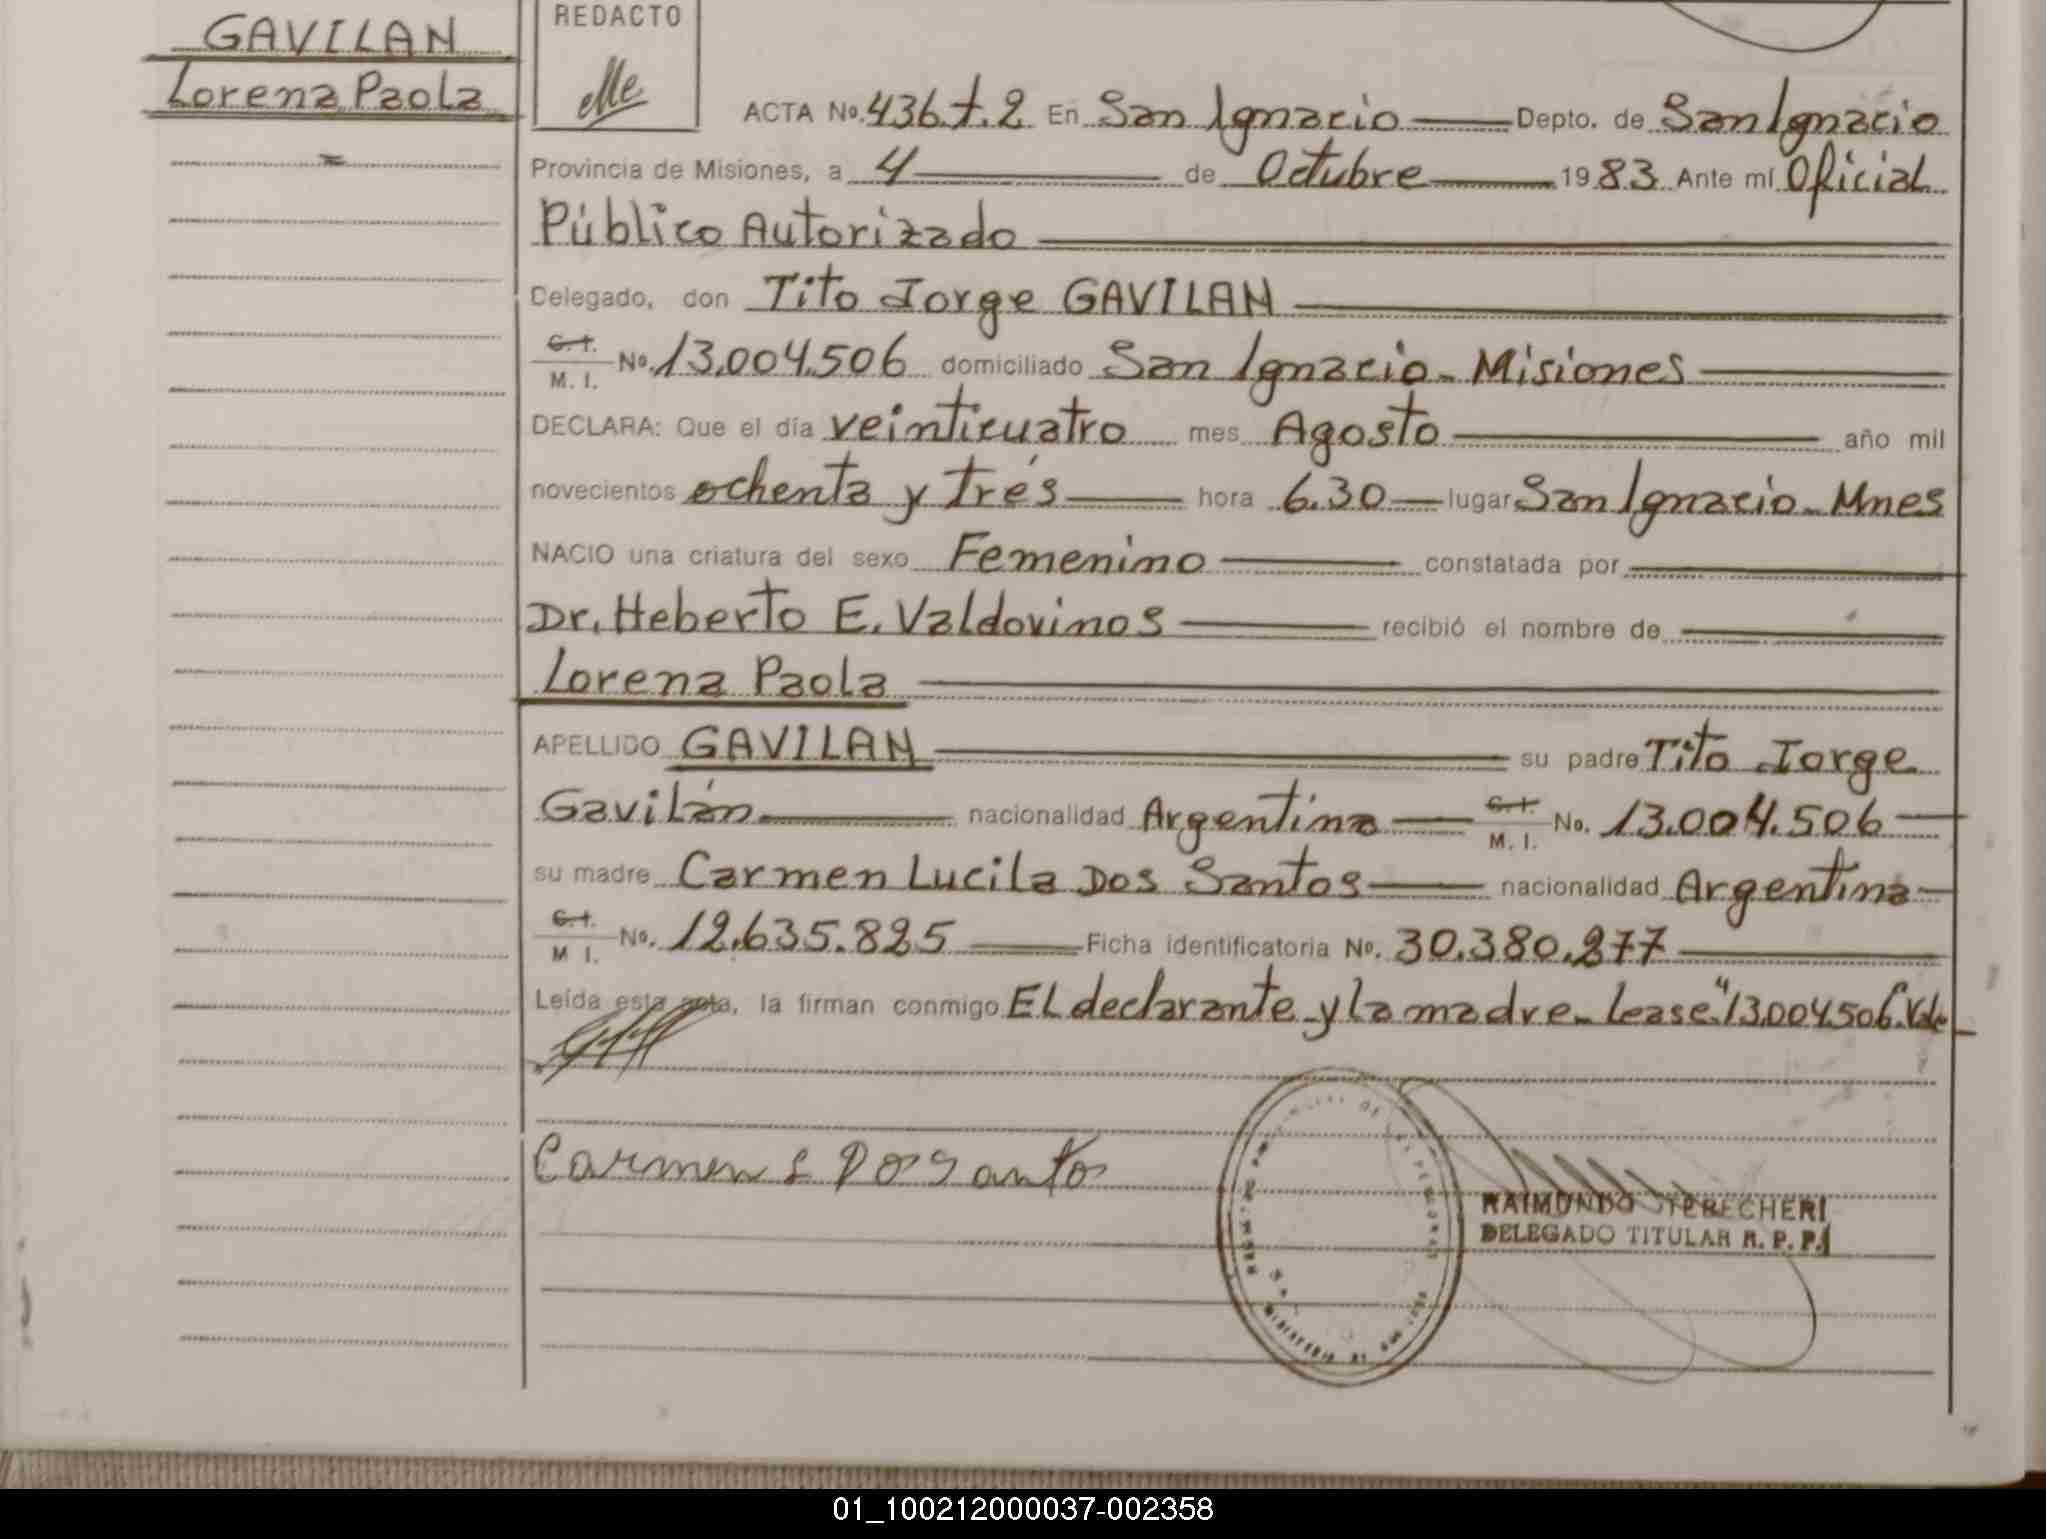 GAVILAN
Lorena Paola
REDACTO
ACTA No. 436 t. 2 En San Ignacio Depto. de San Ignacio
Provincia de Misiones, a 4 de Octubre 1983 Ante mí Oficial
Público Autorizado
Delegado, don Tito Jorge GAVILAN
C. I.
M. I. No. 13.004.506 domiciliado San Ignacio - Misiones
DECLARA: Que el día veinticuatro mes Agosto año mil
novecientos ochenta y trés hora 6.30 lugar San Ignacio - Mnes
NACIO una criatura del sexo Femenino constatada por
Dr. Heberto E. Valdovinos recibió el nombre de
Lorena Paola
APELLIDO GAVILAN su padre Tito Jorge
Gavilán nacionalidad Argentina C. I. M. I. No. 13.004.506
su madre Carmen Lucila Dos Santos nacionalidad Argentina
C. I.
M I. No. 12.635.825 Ficha identificatoria No. 30.380.277
Leída esta acta, la firman conmigo El declarante y la madre - Lease "13.004.506". Vale
Carmen L Dos Santos
RAIMUNDO TERECHERI
DELEGADO TITULAR R. P. P.
01_100212000037-002358